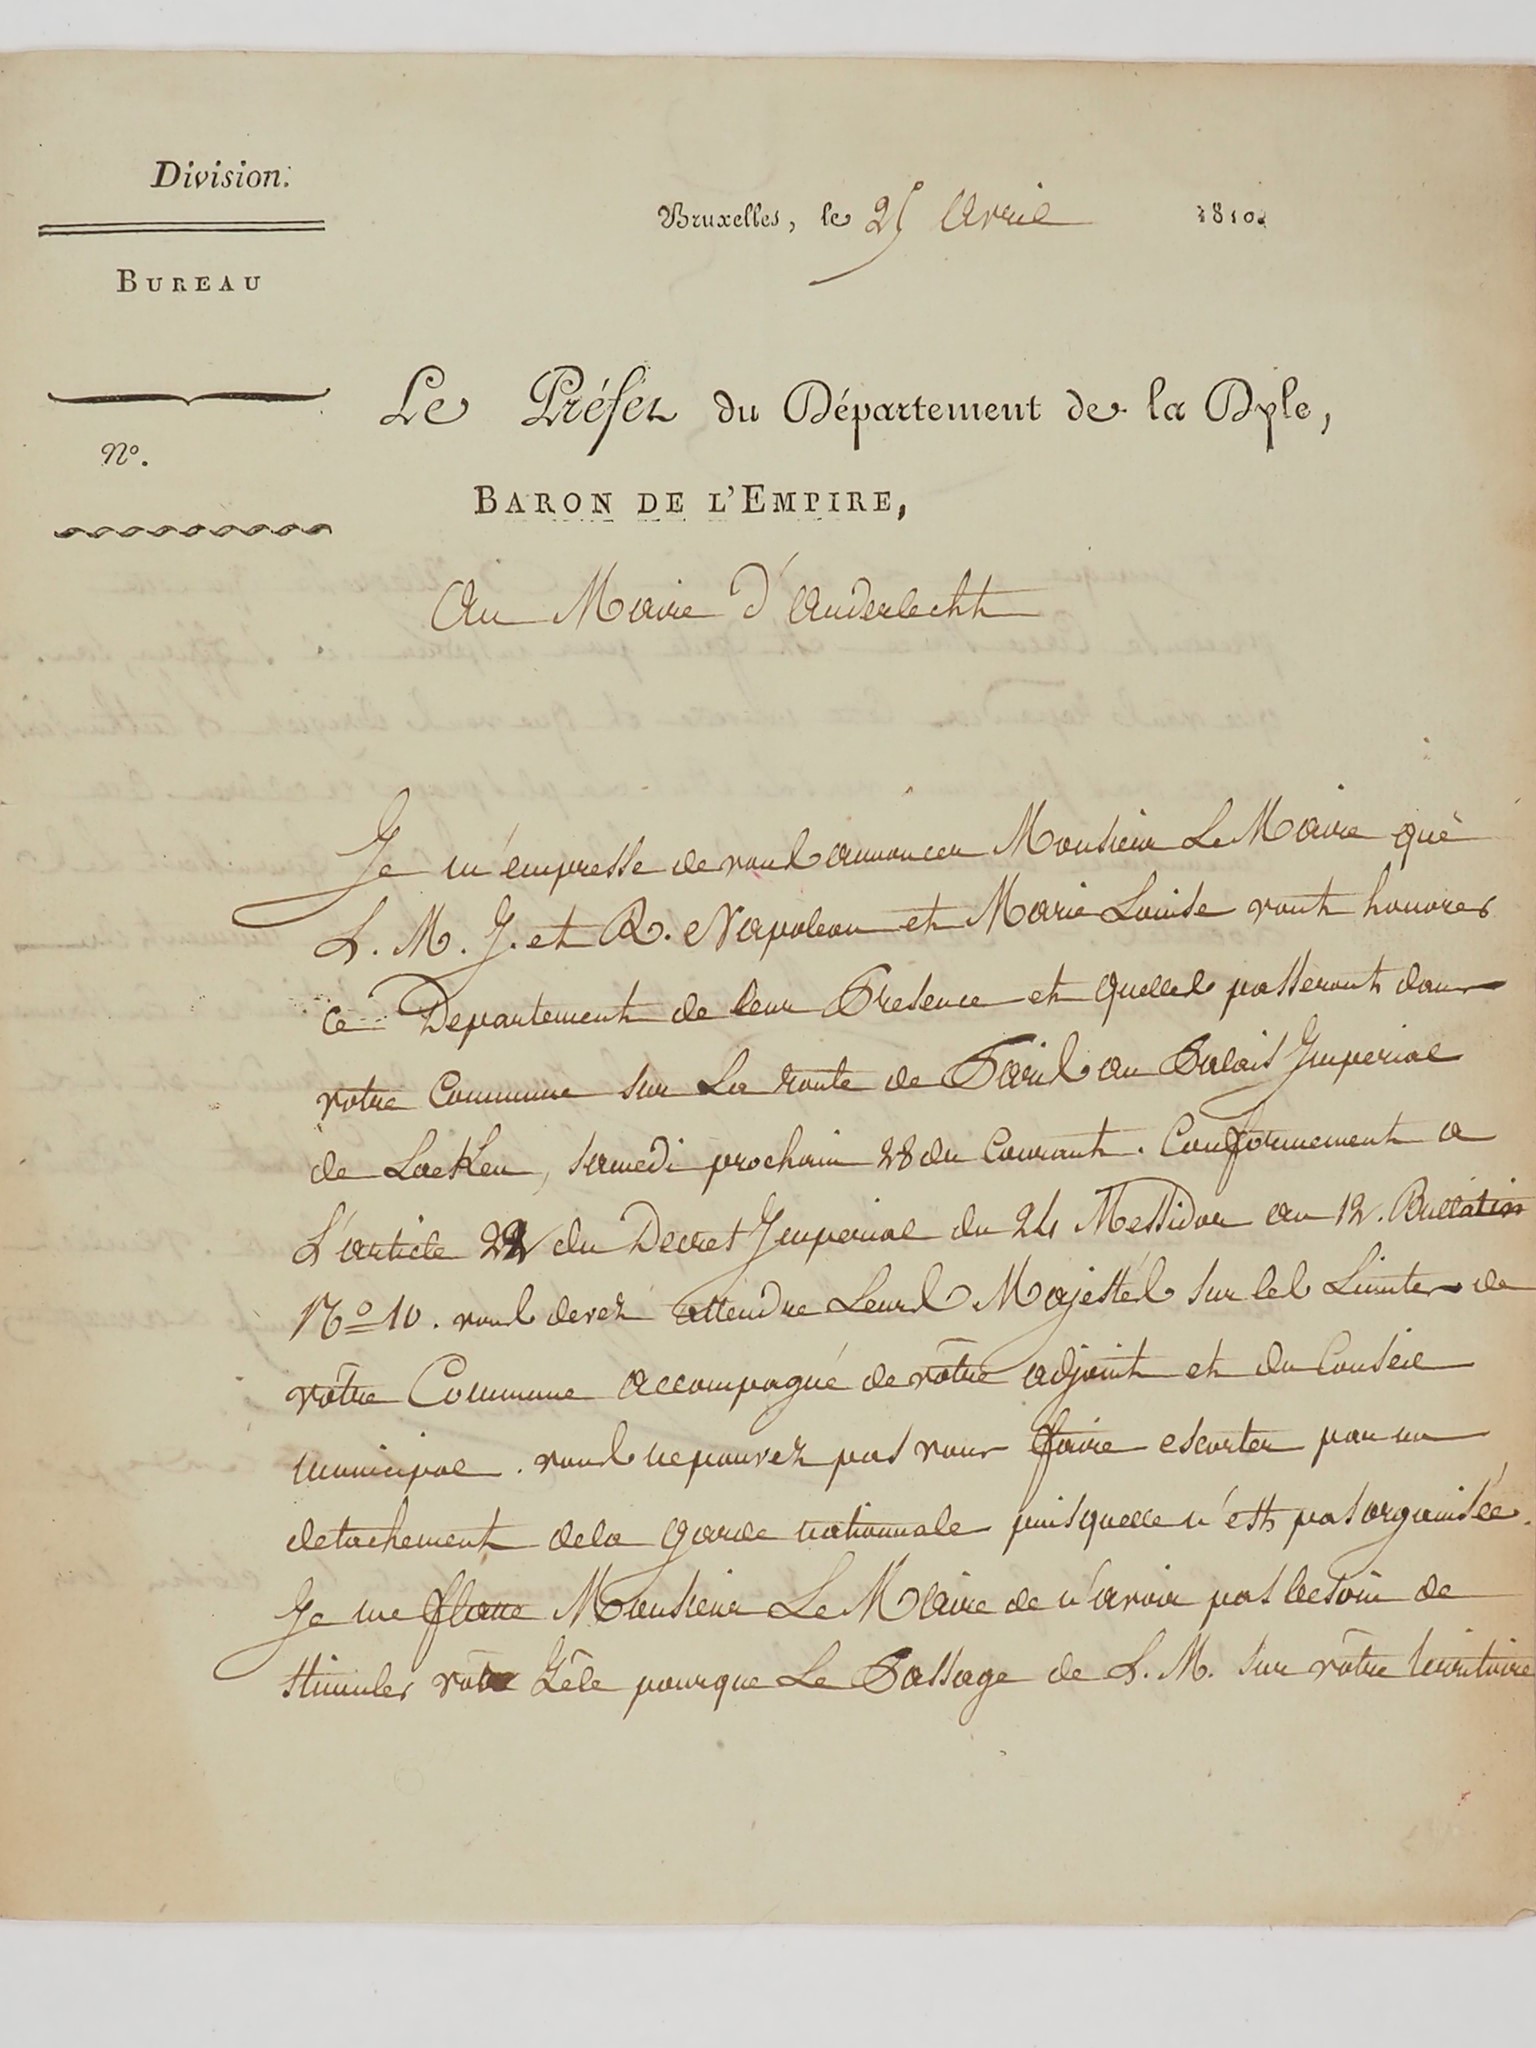 Division.
Bruxelles, le 25 Avril 1810.
BUREAU
Le Préfet du Département de la Dyle,
N°.
BARON DE L'EMPIRE,
Au Maire d'Anderlecht
Je m'empresse de vous annoncer Monsieur Le Maire que
L. M. J. et R. Napoleon et Marie Louise vont honorer
ce Departement de leur Presence et quelles passeront dans
votre Commune sur La route de Paris au Palais Imperial
de LaeKen, samedi prochain 28 du Courant. Conformement a
L'article 22 du Decret Imperial du 24 Messidor an 12. Bulletin
N° 10. vous devez attendre Leurs Majestés sur les Limites de
vôtre Commune accompagné de vôtre adjoint et du Conseil
municipal. vous ne pouvez pas vous faire escorter par un
detachement dela Garde nationnale puisquelle n'est pas organisée.
Je me flatte Monsieur Le Maire de n'avoir pas besoin de
stimuler vôtre Zêle pourque Le Passage de L. M. sur vôtre territoire